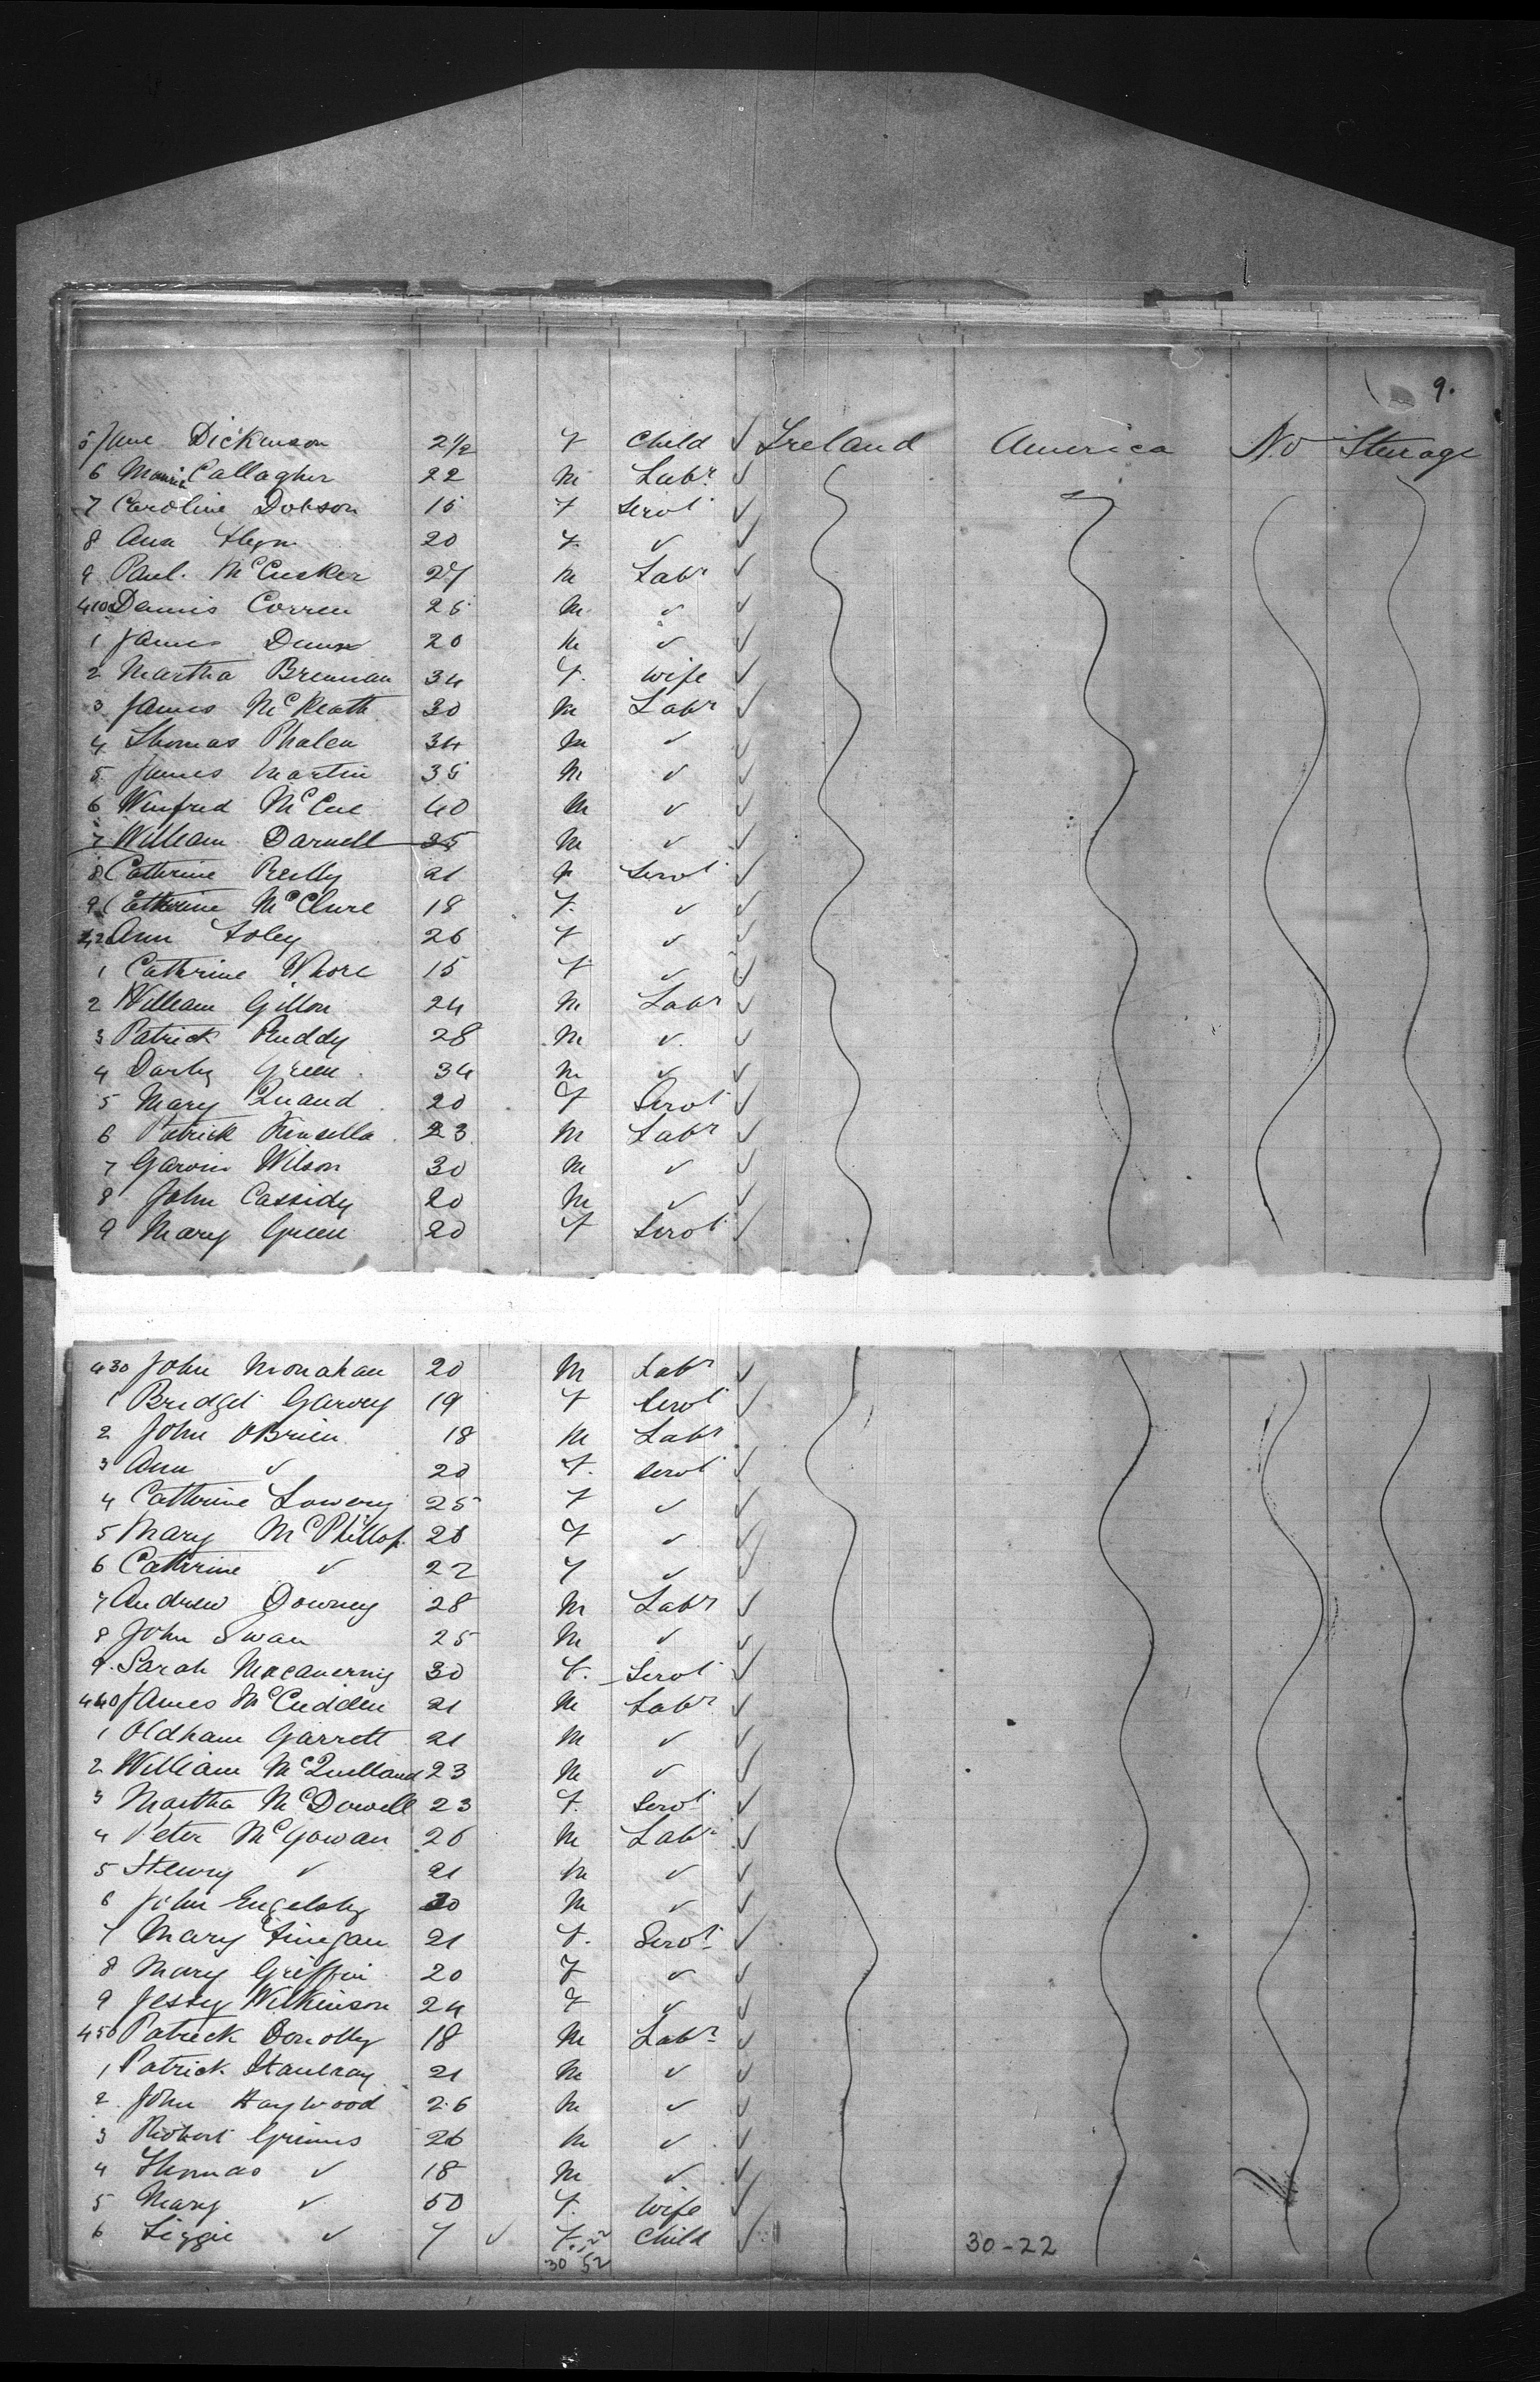 9.
5 Jane Dickinson 2 1/2 F Child ✓ Ireland America No Sterage
6 Callagher 22 M Labr ✓
7 Caroline Dobson 15 F Servt ✓
8 Ann Flyn 20 F ✓ ✓
9 Paul. McCusker 27 M Labr ✓
410 Dennis Corren 25 M ✓ ✓
1 James Dunn 20 M ✓ ✓
2 Martha Brennan 34 F. wife ✓
3 James McKeath 30 M Labr ✓
4 Thomas Phalen 34 M ✓ ✓
5 James Martin 35 M ✓ ✓
6 Winfred McCue 40 M ✓ ✓
7 William Darnell 25 M ✓ ✓
8 Cathrine Reilly 21 F Servt ✓
9 Cathrine McClure 18 F. ✓ ✓
420 Ann Foley 26 F ✓ ✓
1 Cathrine Whore 15 F ✓ ✓
2 William Gillon 24 M Labr ✓
3 Patrick Ruddy 28 M ✓ ✓
4 Darby Green 34 M ✓ ✓
5 Mary Quand 20 F Servt ✓
6 Patrick Kinsella 23 M Labr ✓
7 Garvin Wilson 30 M ✓ ✓
8 John Cassidy 20 M ✓ ✓
9 Mary Green 20 F Servt ✓
430 John Monahan 20 M Labr ✓
1 Bridget Garvey 19 F Servt ✓
2 John OBrien 18 M Labr
3 Ann ✓ 20 F. Servt ✓
4 Cathrine Lowery 25 F ✓ ✓
5 Mary McPhillop 20 F ✓ ✓
6 Cathrine ✓ 22 F ✓ ✓
7 Andrew Downey 28 M Labr ✓
8 John Swan 25 M ✓ ✓
9 Sarah Macaverny 30 F. Servt ✓
440 James McCudden 21 M Labr ✓
1 Oldham Garrett 21 M ✓ ✓
2 William McQuilland 23 M ✓ ✓
3 Martha McDowell 23 F. Servt ✓
4 Peter McGowan 26 M Labr ✓
5 Henry ✓ 21 M ✓ ✓
6 John Engelsby 30 M ✓ ✓
7 Mary Finegan 21 F. Servt ✓
8 Mary Griffin 20 F ✓ ✓
9 Jessy Wilkinson 24 F ✓ ✓
450 Patrick Donolly 18 M Labr ✓
1 Patrick 21 M ✓ ✓
2 John Haywood 26 M ✓ ✓
3 Robert Grimes 26 M ✓ ✓
4 Thomas ✓ 18 M ✓ ✓
5 Mary ✓ 50 F. Wife ✓
6 Lizzie ✓ 7 ✓ F. 22 Child ✓ 30-22
30 52